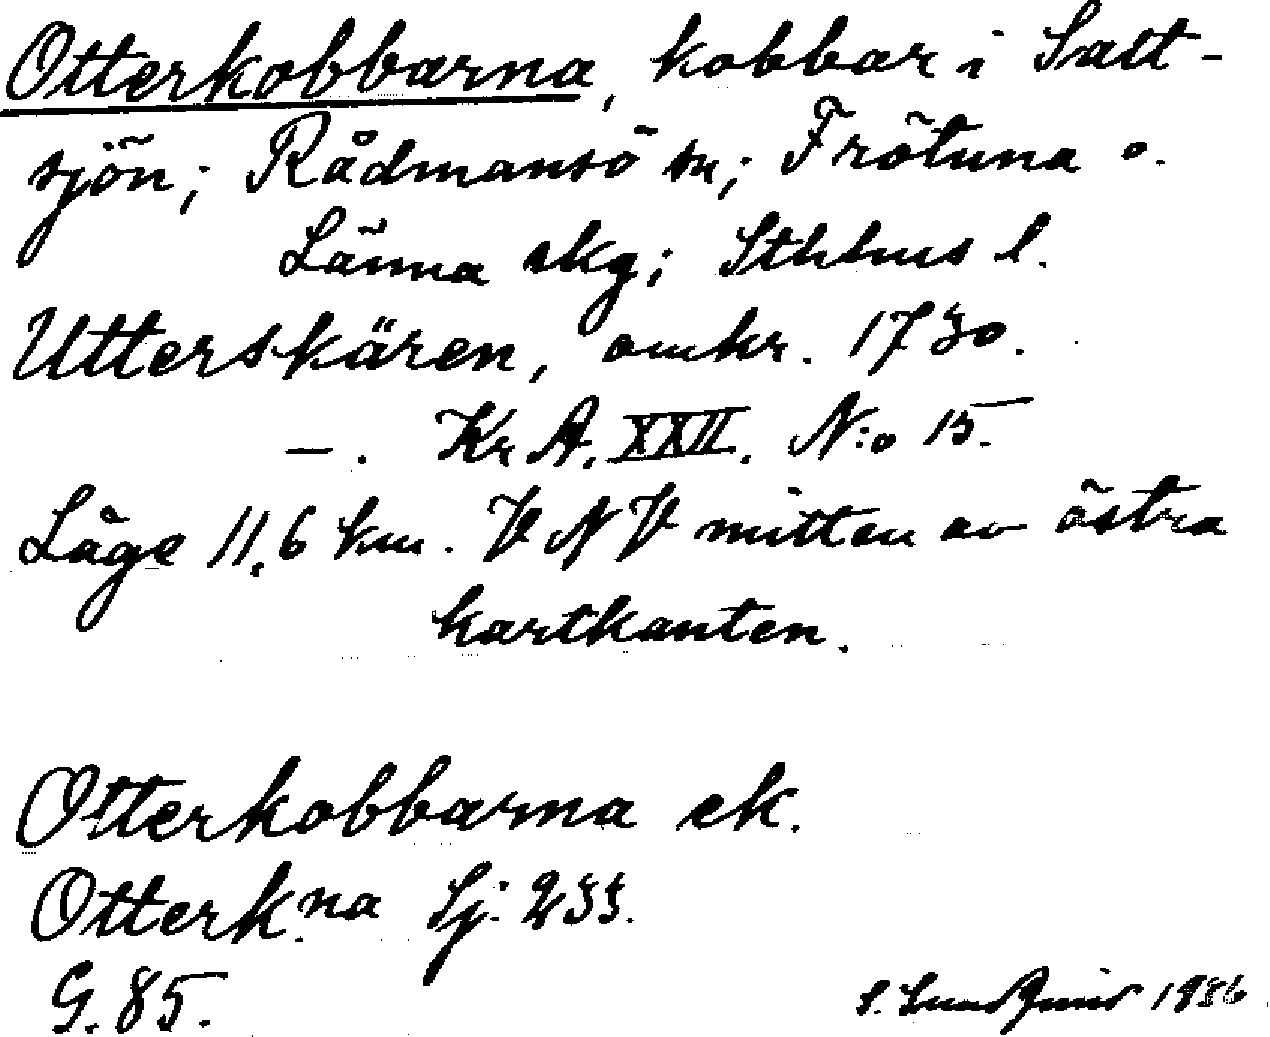 Otterkobbarna, kobbar i Salt-
sjön; Rådmansö sn; Frötuna o.
Länna skg; Sthlms l.
Utterskären, omkr. 1730.
—. Kr A. XXII. N:o 15.
Läge 11,6 km. VNV mitten av östra
kartkanten.
Otterkobbarna ek.
Otterk:na Sj. 233.
G. 85.
S. Lundqvist 1936